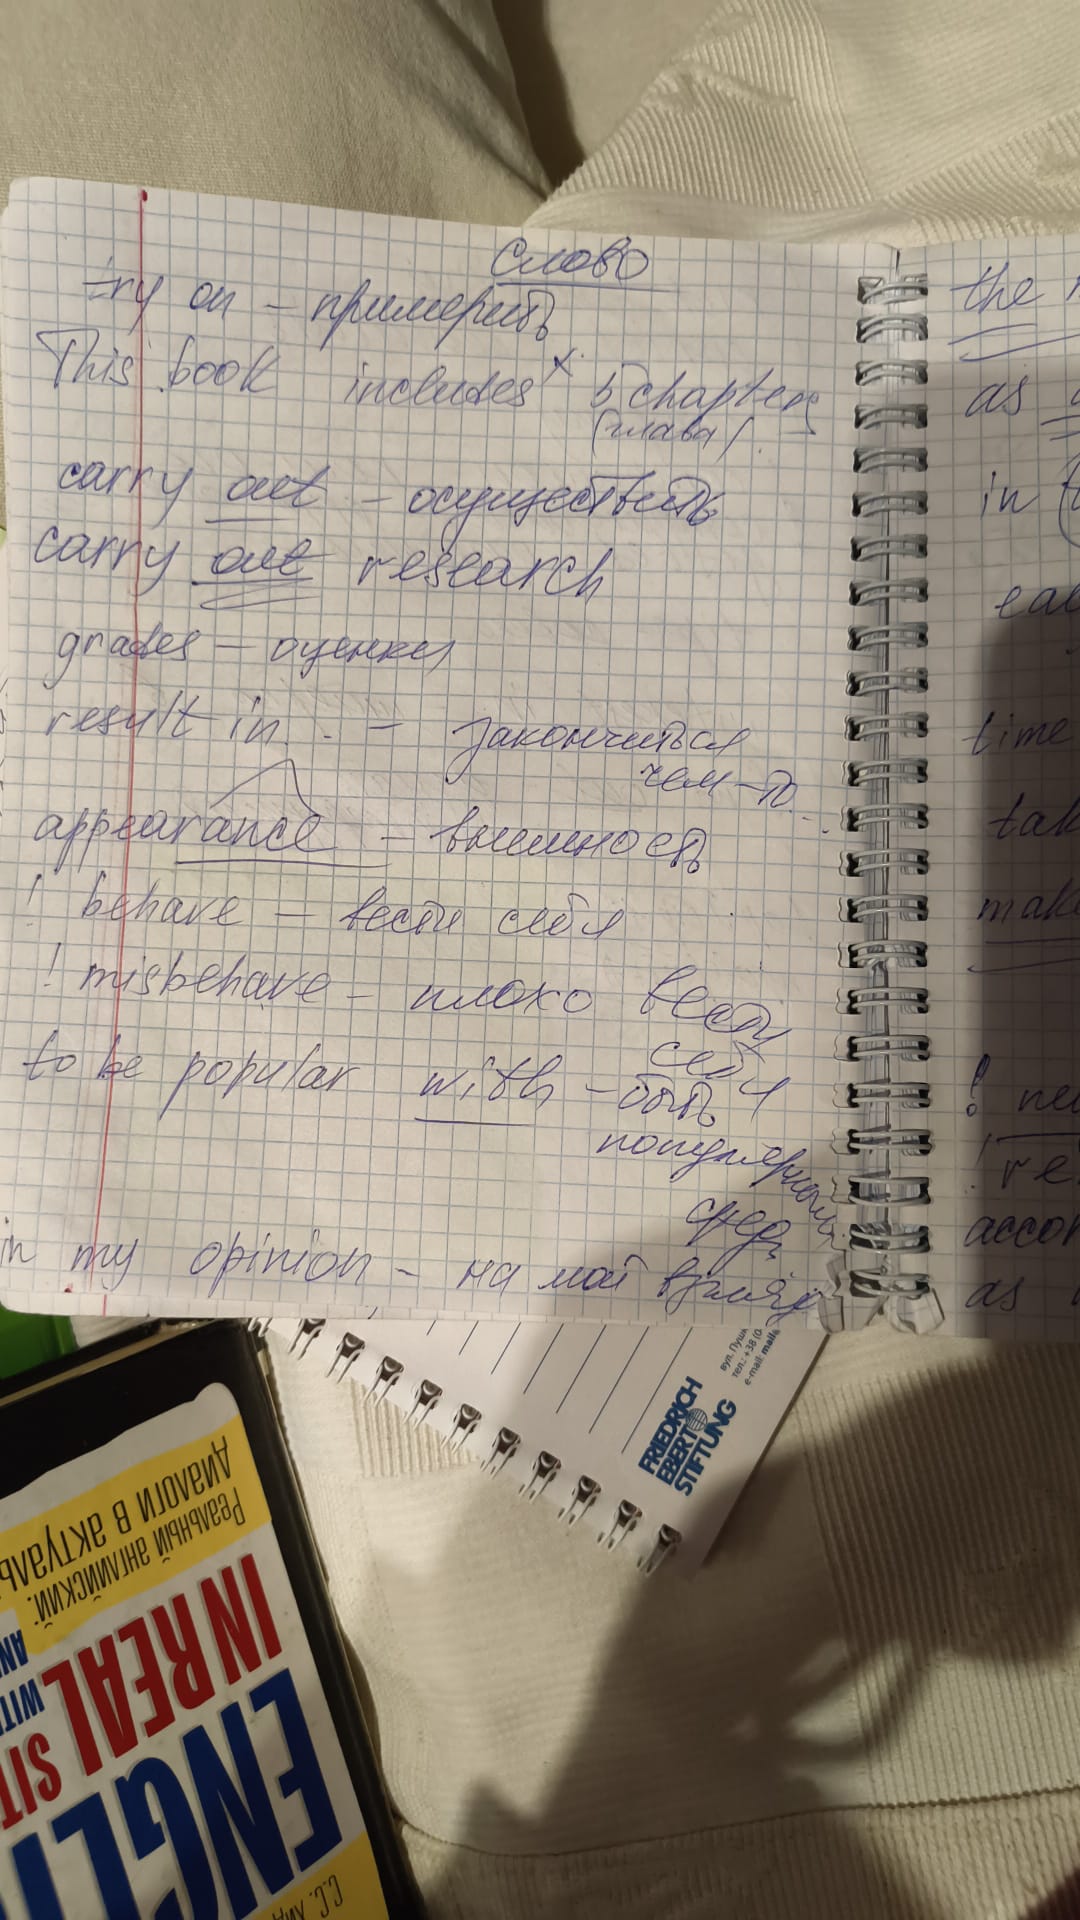 Слово
try on – примерить
This book includes x 5 chapters
(глава)
carry out – осуществить
carry out research
grades – оценки
result in... – закончиться
чем-то...
appearance – внешность
! behave – вести себя
! misbehave – плохо вести
себя
to be popular with – быть
популярным
среди
in my opinion – на мой взгляд
the
as
in
time
! 
!
as
FRIEDRICH
EBERT
STIFTUNG
вул. Пушк
тел.: +38 (0
e-mail: mail
Реальный английский.
Диалоги в актуаль
ENGLI
IN REAL SIT
WITH
AN
С.С. Хид